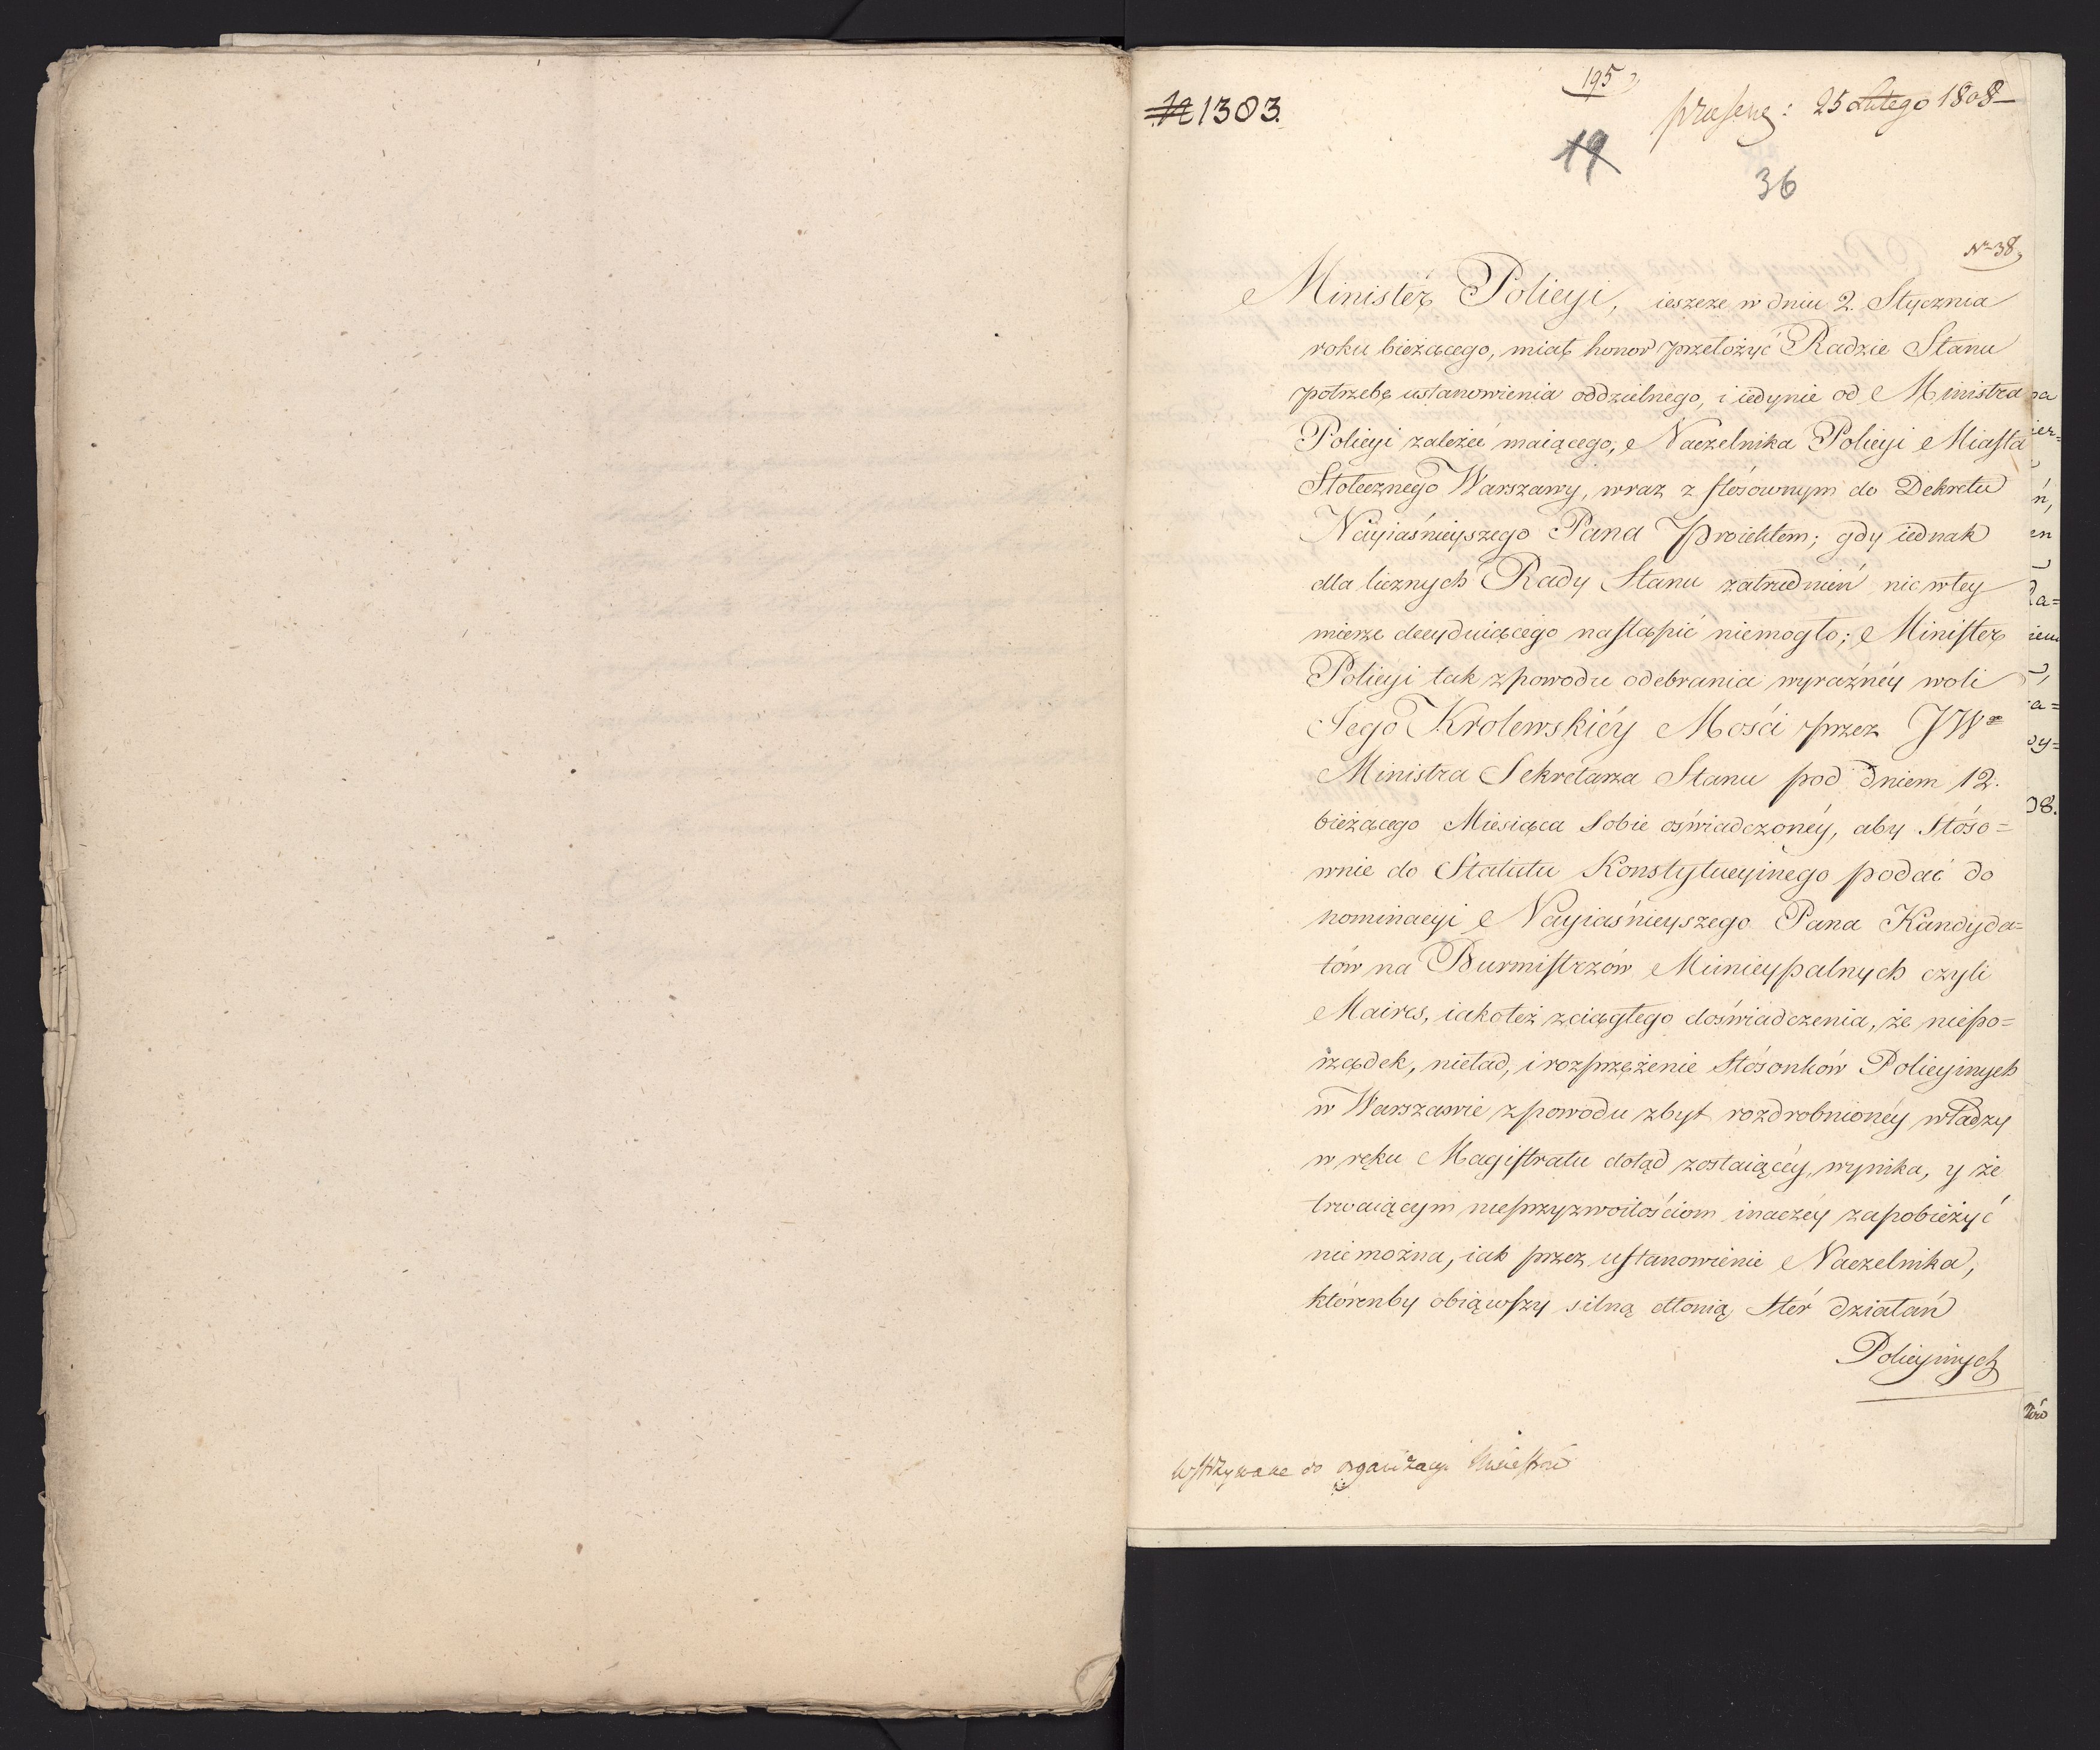 195
N 1303.
præsent: 25 Lutego 1808
19
36
Nr 38
Minister Policyi, ieszcze w dniu 2. Stycznia
roku bieżącego, miał honor przełożyć Radzie Stanu
potrzebę ustanowienia oddzielnego, i iedynie od Ministra
Policyi zależeć maiącego, Naczelnika Policyi Miasta
Stołecznego Warszawy, wraz z stósownym do Dekretu
Nayiaśnieyszego Pana Proiektem; gdy iednak
dla licznych Rady Stanu zatrudnień nic w tey
mierze decyduiącego nastąpić niemogło; Minister
Policyi tak z powodu odebrania wyraźnéy woli
Jego Krolewskiéy Mości przez JWo
Ministra Sekretarza Stanu pod dniem 12.
bieżącego Miesiąca sobie oświadczonéy, aby stóso=
wnie do Statutu Konstytucyinego podać do
nominacyi Nayiaśnieyszego Pana Kandyda=
tów na Burmistrzów Municypalnych czyli
Maires, iakoteż z ciągłego doświadczenia, że niepo=
rządek, nieład, i rozprzężenie Stósonków Policyinych
w Warszawie z powodu zbyt rozdrobnionéy władzy
w ręku Magistratu dotąd zostaiącéy, wynika, y że
trwaiącym nieprzyzwoitościom inaczéy zapobieżyć
nie można, iak przez ustanowienie Naczelnika,
którenby obiąwszy silną dłonią Stér działań
Policyinych
Wstrzymane do organizacyi